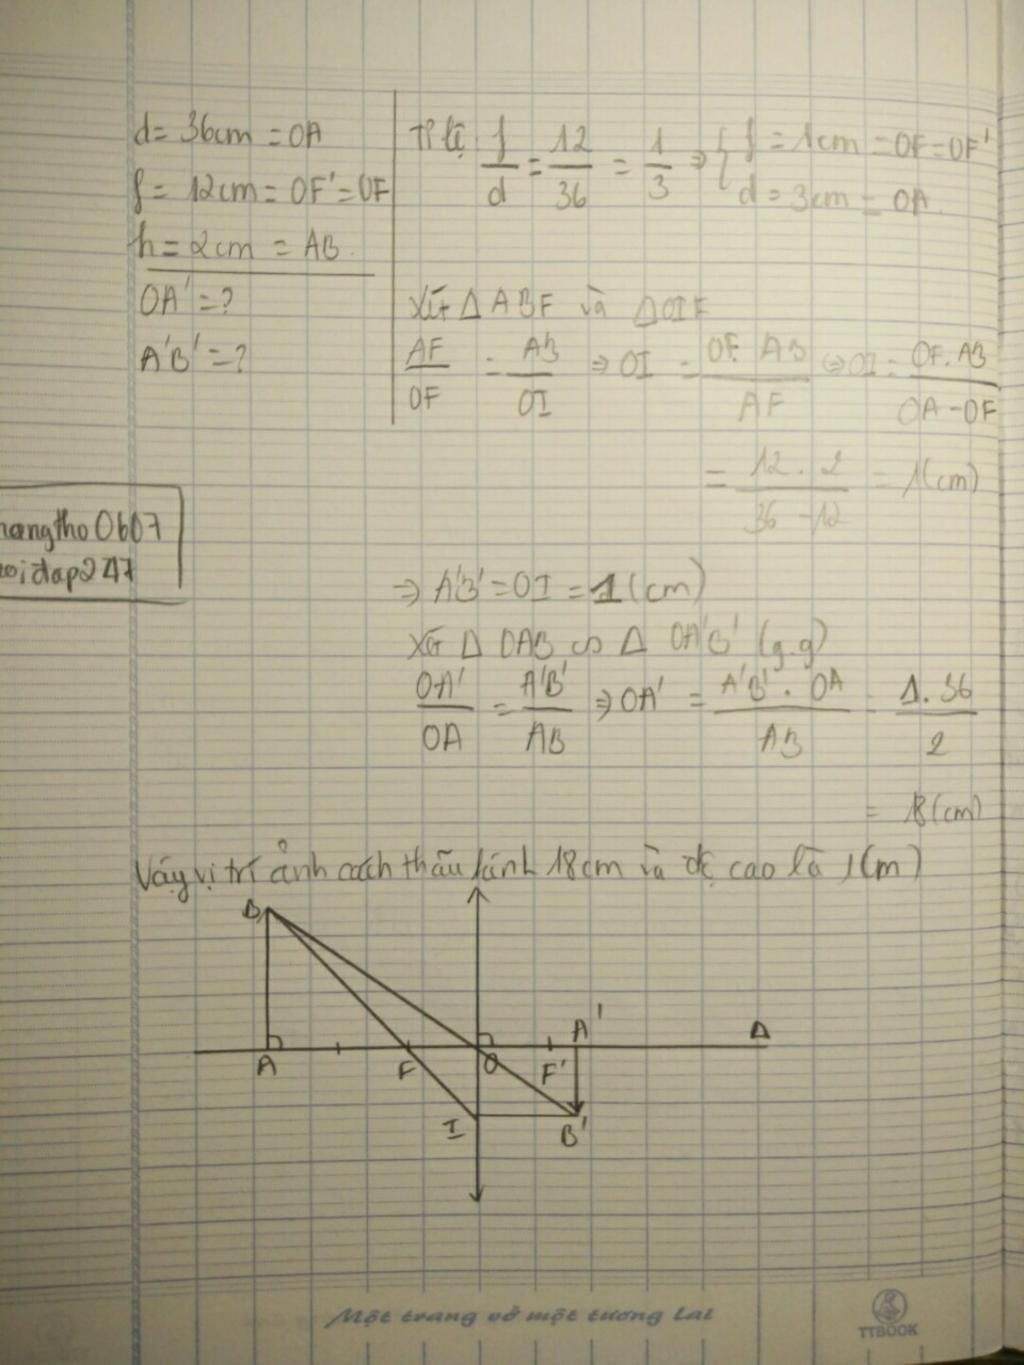 d = 36cm = OA
f = 12cm = OF' = OF
h = 2cm = AB
OA' = ?
A'B' = ?
Tỉ lệ f/d = 12/36 = 1/3 ⇒ { f = 1cm = OF = OF'
d = 3cm = OA
Xét Δ ABF và Δ OIF
AF/OF = AB/OI ⇒ OI = OF. AB/AF ⇒ OI = OF. AB/OA - OF
= 12 . 2/36 - 12 = 1(cm)
⇒ A'B' = OI = 1(cm)
Xét Δ OAB ∽ Δ OA'B' (g.g)
OA'/OA = A'B'/AB ⇒ OA' = A'B' . OA/AB = 1. 36/2
= 18(cm)
hoangtho0607
hoidap247
Vậy vị trí ảnh cách thấu kính 18cm và độ cao là 1(m)
B
A' Δ
A F O F'
I B'
Một trang vở một tương lai
TTBOOK